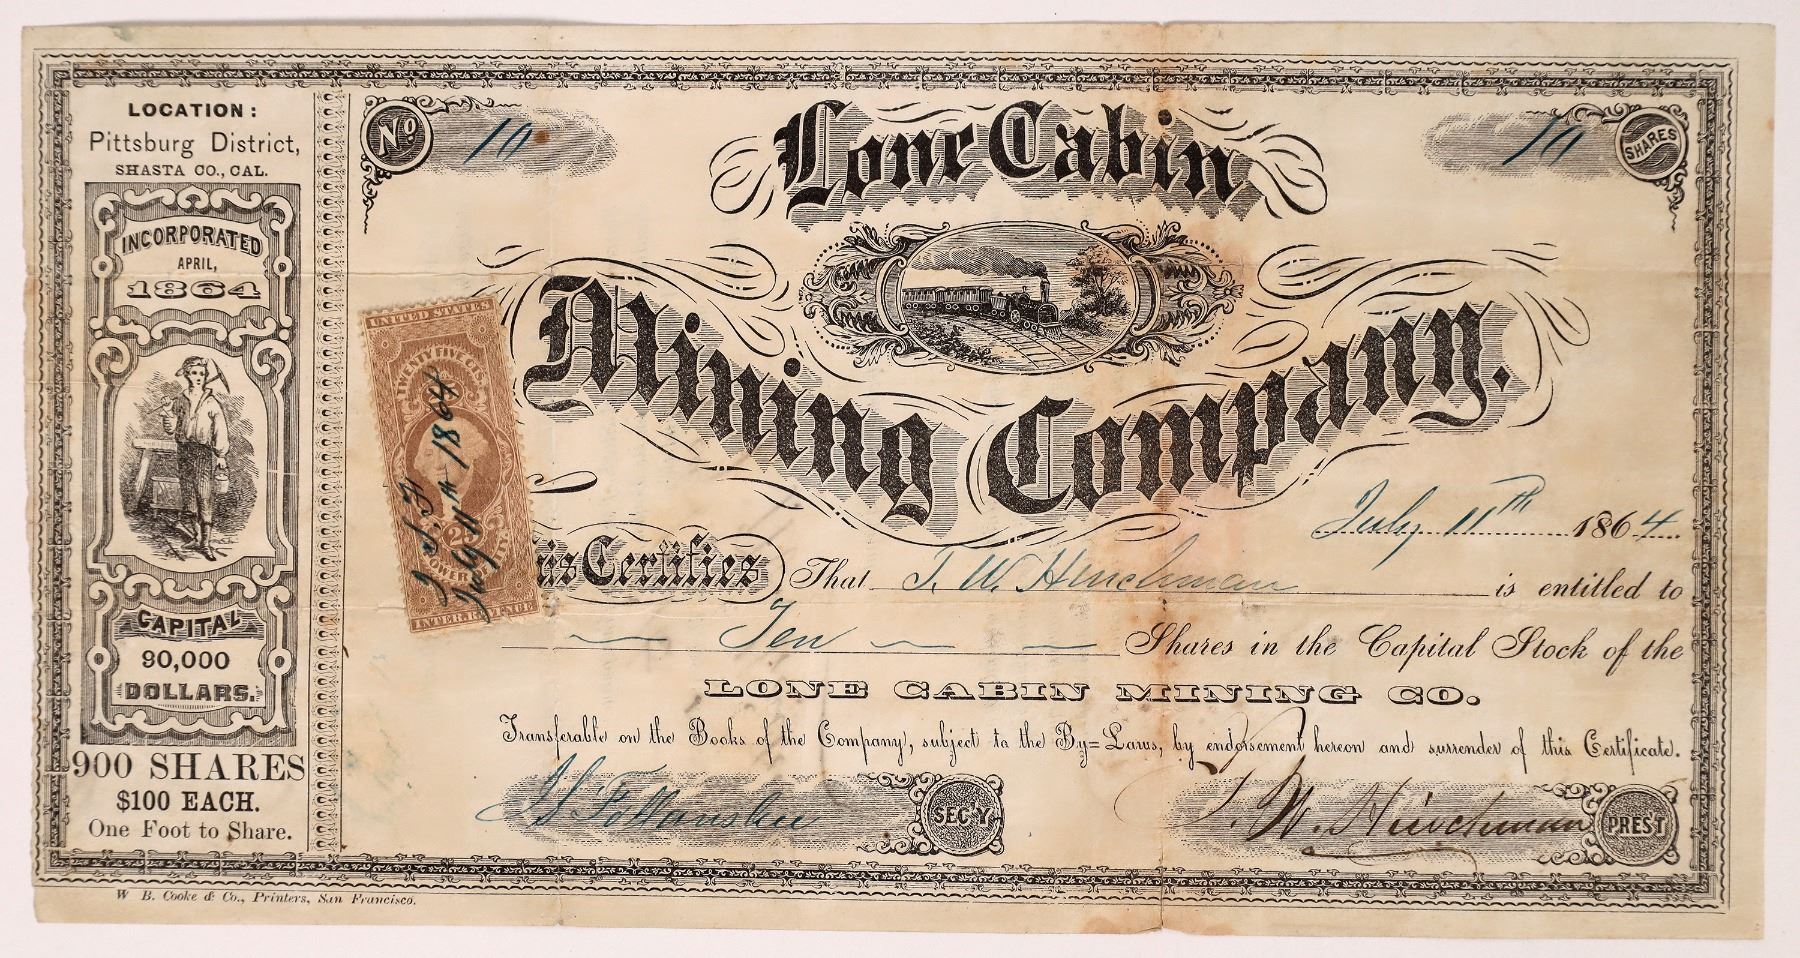 LOCATION:
Pittsburg District,
SHASTA CO., CAL.
INCORPORATED
APRIL,
1864
CAPITAL
90,000
DOLLARS.
900 SHARES
$100 EACH.
One Foot to Share.
No. 10
10 SHARES
Lone Cabin
Mining Company.
UNITED STATES
TWENTY FIVE CTS.
July 11th 1864
25
INTER. REVENUE
July 11th 1864
is Certifies That T. W. Hinchman is entitled to
Ten Shares in the Capital Stock of the
LONE CABIN MINING CO.
Transferable on the Books of the Company, subject to the By=Laws, by endorsement hereon and surrender of this Certificate.
Follansbee SEC'Y
T. W. Hinchman PRES'T
W B. Cooke & Co., Printers, San Francisco.